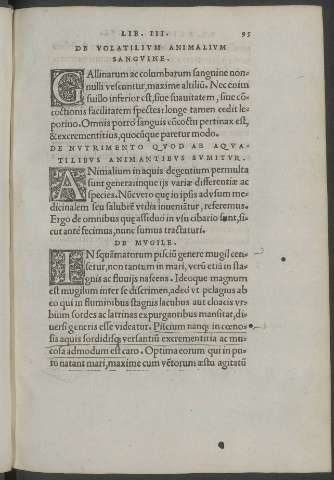 LIB. III. 95
DE VOLATILIVM ANIMALIVM
SANGVINE.
GAllinarum ac columbarum sanguine non-
nulli vescuntur, maxime altiliū. Nec eo im
suillo inferior est, siue suauitatem, siue cō-
coctionis facilitatem spectes: longe tamen cedit le-
porino. Omnis porro sanguis cōcoctu pertinax est,
& excrementitius, quocūque paretur modo.
DE NVTRIMENTO QVOD AB AQVA-
TILIBVS ANIMANTIBVS SVMITVR.
ANimalium in aquis degentium permulta
sunt genera: itinque ijs variæ differentiæ ac
species. Nūc vero quę in ipsis ad vsum me-
dicinalem seu salubrē vtilia inuenītur, referemus.
Ergo de omnibus quę assiduo in vsu cibario sunt, si-
cut ante fecimus, nunc sumus tractaturi.
DE MVGILE.
IN squāmatorum pisciū genere mugil cen-
setur, non tantum in mari, verū etiā in sta-
gnis ac fluuijs nascens. Ideoque magnum
est mugilum inter se discrimen, adeo vt pelagius ab
eo qui in fluminibus stagnis lacubus aut cloacis vr-
bium sordes ac latrinas expurgantibus mansitat, di-
uersi generis esse videatur. Piscium nanq; in cœno-
sis aquis sordidisq; versantiū excrementitia ac mu-
cosa admodum est caro. Optima eorum qui in pu-
ro natant mari, maxime cum vētorum æstu agitatū